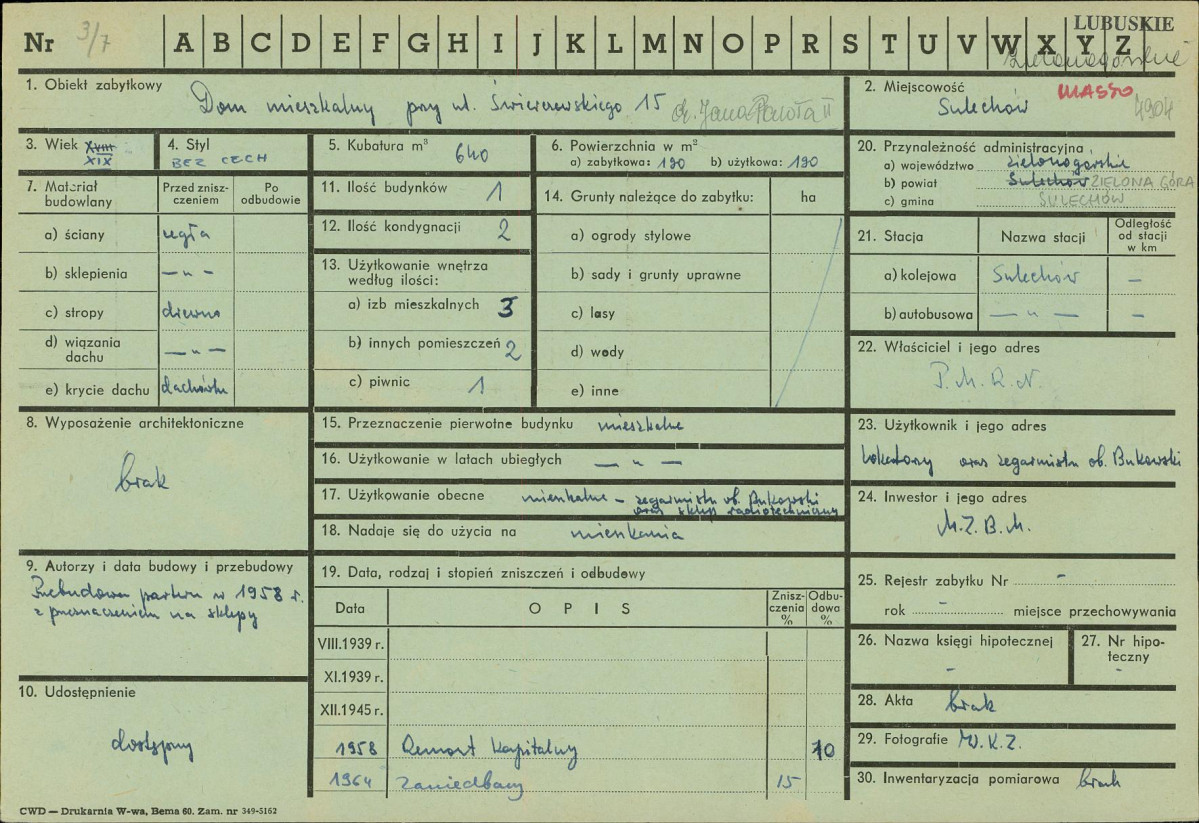 LUBUSKIE
Nr 3/7 A B C D E F G H I J K L M N O P R S T U V W X Y Z
zielonogórskie
1. Obiekt zabytkowy
Dom mieszkalny przy ul. Świerczewskiego 15 ob. Jana Pawła II
2. Miejscowość
Sulechów
MASSO
4904
3. Wiek XVIII
XIX
4. Styl
BEZ CECH
5. Kubatura m³ 640
6. Powierzchnia w m²
a) zabytkowa: 190 b) użytkowa: 190
20. Przynależność administracyjna
a) województwo zielonogórskie
b) powiat Sulechów ZIELONA GÓRA
c) gmina SULECHÓW
7. Materiał budowlany
Przed zniszczeniem
Po odbudowie
a) ściany cegła
b) sklepienia — „ —
c) stropy drewno
d) wiązania dachu — „ —
e) krycie dachu dachówka
11. Ilość budynków 1
12. Ilość kondygnacji 2
13. Użytkowanie wnętrza
według ilości:
a) izb mieszkalnych 3
b) innych pomieszczeń 2
c) piwnic 1
14. Grunty należące do zabytku: ha
a) ogrody stylowe
b) sady i grunty uprawne
c) lasy
d) wody
e) inne
21. Stacja
Nazwa stacji
Odległość od stacji w km
a) kolejowa Sulechów —
b) autobusowa — „ — —
22. Właściciel i jego adres
P.M.R.N.
8. Wyposażenie architektoniczne
brak
15. Przeznaczenie pierwotne budynku mieszkalne
16. Użytkowanie w latach ubiegłych — „ —
17. Użytkowanie obecne mieszkalne – zegarmistrz ob. Bukowski
oraz sklep radiotechniczny
18. Nadaje się do użycia na mieszkania
23. Użytkownik i jego adres
lokatorzy oraz zegarmistrz ob. Bukowski
24. Inwestor i jego adres
M.Z.B.M.
9. Autorzy i data budowy i przebudowy
Przebudowa parteru w 1958 r.
z przeznaczeniem na sklepy
19. Data, rodzaj i stopień zniszczeń i odbudowy
Data
OPIS
Zniszczenia %
Odbudowa %
VIII.1939 r.
XI.1939 r.
XII.1945 r.
1958 Remont kapitalny 10
1964 Zaniedbany 15
25. Rejestr zabytku Nr –
rok – miejsce przechowywania
26. Nazwa księgi hipotecznej
–
27. Nr hipoteczny
–
10. Udostępnienie
dostępny
28. Akta brak
29. Fotografie W.K.Z.
30. Inwentaryzacja pomiarowa brak
CWD — Drukarnia W-wa, Bema 60. Zam. nr 349-5162